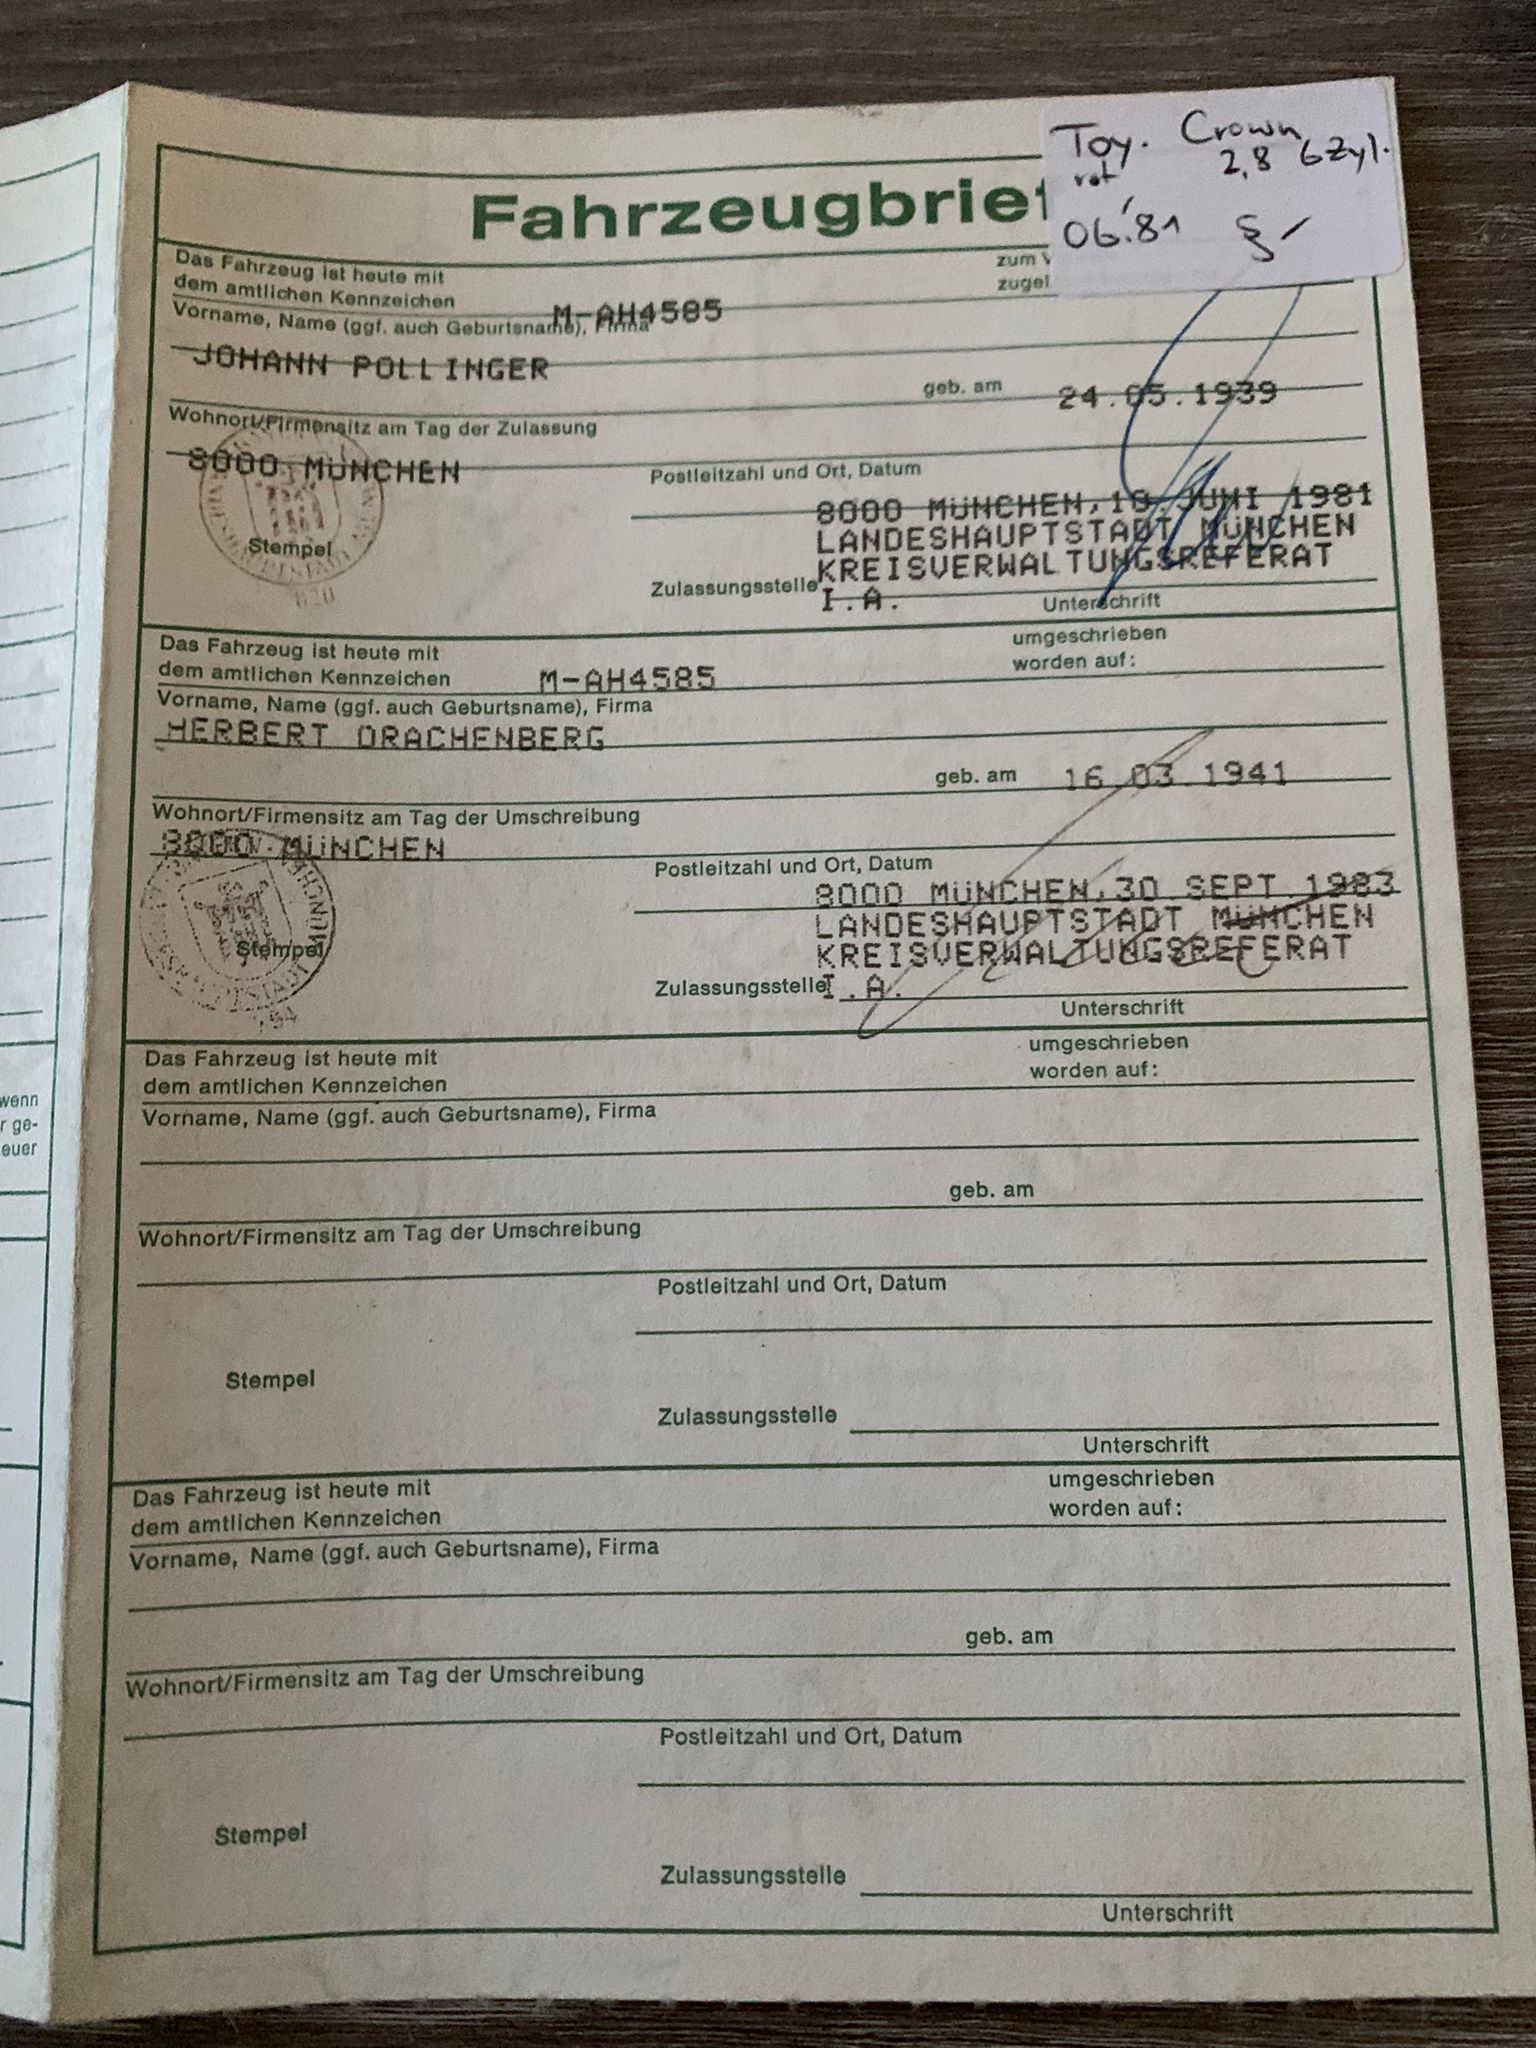 Toy. Crown
rot 2,8 6Zyl.
06.'81
Fahrzeugbrief
Das Fahrzeug ist heute mit
dem amtlichen Kennzeichen M-AH4585
zum V
zugel
Vorname, Name (ggf. auch Geburtsname), Firma
JOHANN POLLINGER
geb. am 24.05.1939
Wohnort/Firmensitz am Tag der Zulassung
8000 MÜNCHEN
Postleitzahl und Ort, Datum
8000 MÜNCHEN, 10 JUNI 1981
LANDESHAUPTSTADT MÜNCHEN
KREISVERWALTUNGSREFERAT
Stempel
Zulassungsstelle I.A.
Unterschrift
Das Fahrzeug ist heute mit
dem amtlichen Kennzeichen M-AH4585
umgeschrieben
worden auf:
Vorname, Name (ggf. auch Geburtsname), Firma
HERBERT DRACHENBERG
geb. am 16.03.1941
Wohnort/Firmensitz am Tag der Umschreibung
8000 MÜNCHEN
Postleitzahl und Ort, Datum
8000 MÜNCHEN, 30 SEPT 1983
LANDESHAUPTSTADT MÜNCHEN
KREISVERWALTUNGSREFERAT
Stempel
Zulassungsstelle I.A.
Unterschrift
Das Fahrzeug ist heute mit
dem amtlichen Kennzeichen
umgeschrieben
worden auf:
Vorname, Name (ggf. auch Geburtsname), Firma
geb. am
Wohnort/Firmensitz am Tag der Umschreibung
Postleitzahl und Ort, Datum
Stempel
Zulassungsstelle
Unterschrift
Das Fahrzeug ist heute mit
dem amtlichen Kennzeichen
umgeschrieben
worden auf:
Vorname, Name (ggf. auch Geburtsname), Firma
geb. am
Wohnort/Firmensitz am Tag der Umschreibung
Postleitzahl und Ort, Datum
Stempel
Zulassungsstelle
Unterschrift
wenn
r ge-
euer